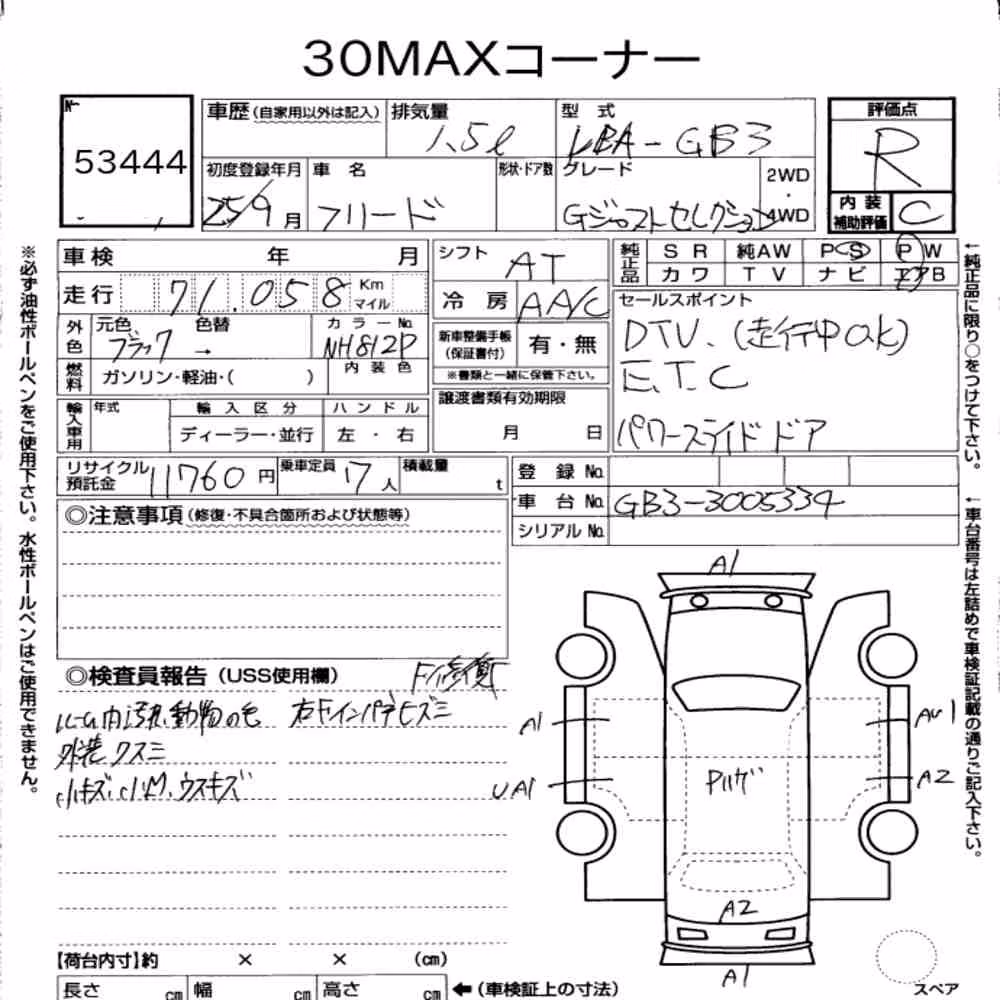 30MAXコーナー
No.
53444
車歴(自家用以外は記入)
排気量
1.5ℓ
型式
DBA-GB3
評価点
R
初度登録年月
25/9月
車名
フリード
形状・ドア数
グレード
Gジャストセレクション
2WD
・
4WD
内装補助評価
C
車検 年 月
走行 71.058 Km マイル
外色
元色 色替
ブラック →
カラーNo.
NH812P
燃料
ガソリン・軽油・( )
内装色
輸入車用
年式
輸入区分
ディーラー・並行
ハンドル
左・右
シフト
AT
冷房
AA/C
新車整備手帳(保証書付)
有・無
※書類と一緒に保管下さい。
譲渡書類有効期限
月 日
純正品
SR 純AW PS PW
カワ TV ナビ エアB
セールスポイント
DTV.(走行中OK)
E.T.C
パワースライドドア
リサイクル預託金
11760円
乗車定員
7人
積載量
t
登録No.
車台No.
GB3-3005334
シリアルNo.
◎注意事項(修復・不具合箇所および状態等)
◎検査員報告(USS使用欄)
ルーム内汚れ、動物の毛
外装クスミ
小キズ、小凹、ウスキズ
右Fインパチヒズミ
A1
A1
UA1
AU1
A2
A2
A1
スペア
【荷台内寸】約 × × (cm)
長さ cm
幅 cm
高さ cm
←(車検証上の寸法)
※必ず油性ボールペンをご使用下さい。水性ボールペンはご使用できません。
←純正品に限り○をつけて下さい。
←車台番号は左詰めで車検証記載の通りご記入下さい。